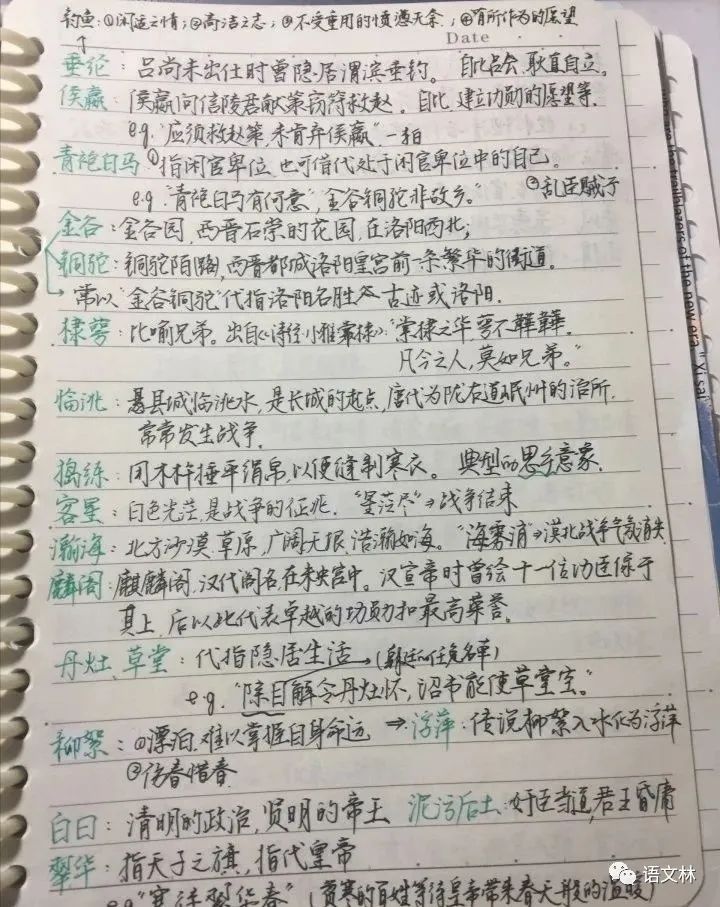 钓鱼:①闲适之情;②高洁之志;③不受重用的愤懑无奈;④有所作为的愿望
Date
垂纶:吕尚未出仕时曾隐居渭滨垂钓。自比吕尚,耿直自立。
侯嬴:侯嬴向信陵君献策窃符救赵。自比,建立功勋的愿望等.
e.g."应须救赵策,未肯弃侯嬴"
青袍白马①指闲官卑位.也可借代处于闲官卑位中的自己。
e.g."青袍白马有何意",金谷铜驼非故乡。" ②乱臣贼子
金谷:金谷园,西晋石崇的花园,在洛阳西北;
铜驼:铜驼陌路,西晋都城洛阳皇宫前一条繁华的街道。
常以"金谷铜驼"代指洛阳名胜古迹或洛阳.
棣萼:比喻兄弟。出自《诗经小雅常棣》"棠棣之华,萼不韡韡.
凡今之人,莫如兄弟。"
临洮:县城临洮水,是长城的起点,唐代为陇右道岷州的治所.
常常发生战争.
捣练:用木杵捶平绢帛,以便缝制寒衣。典型的思乡意象.
客星:白色光芒,是战争的征兆."星芒尽"→战争结束
瀚海:北方沙漠,草原,广阔无垠,浩瀚如海。"海雾消"→漠北战争气氛消失
麟阁:麒麟阁,汉代阁名在未央宫中。汉宣帝时曾绘十一位功臣像于
其上,后以此代表卓越的功勋和最高荣誉。
丹灶、草堂:代指隐居生活→(朝廷任免名单)
e.g."除目解令丹灶坏,诏书能使草堂空."
柳絮:①漂泊.难以掌握自身命运→浮萍:传说柳絮入水化为浮萍
②伤春惜春
白日:清明的政治,贤明的帝王 泥污后土:奸臣当道,君王昏庸
翠华:指天子之旗,指代皇帝
e.g."寒待翠华春"(贫寒的百姓等待皇帝带来春天般的温暖)
the trailblazers of the new era," Xi sai
语文林